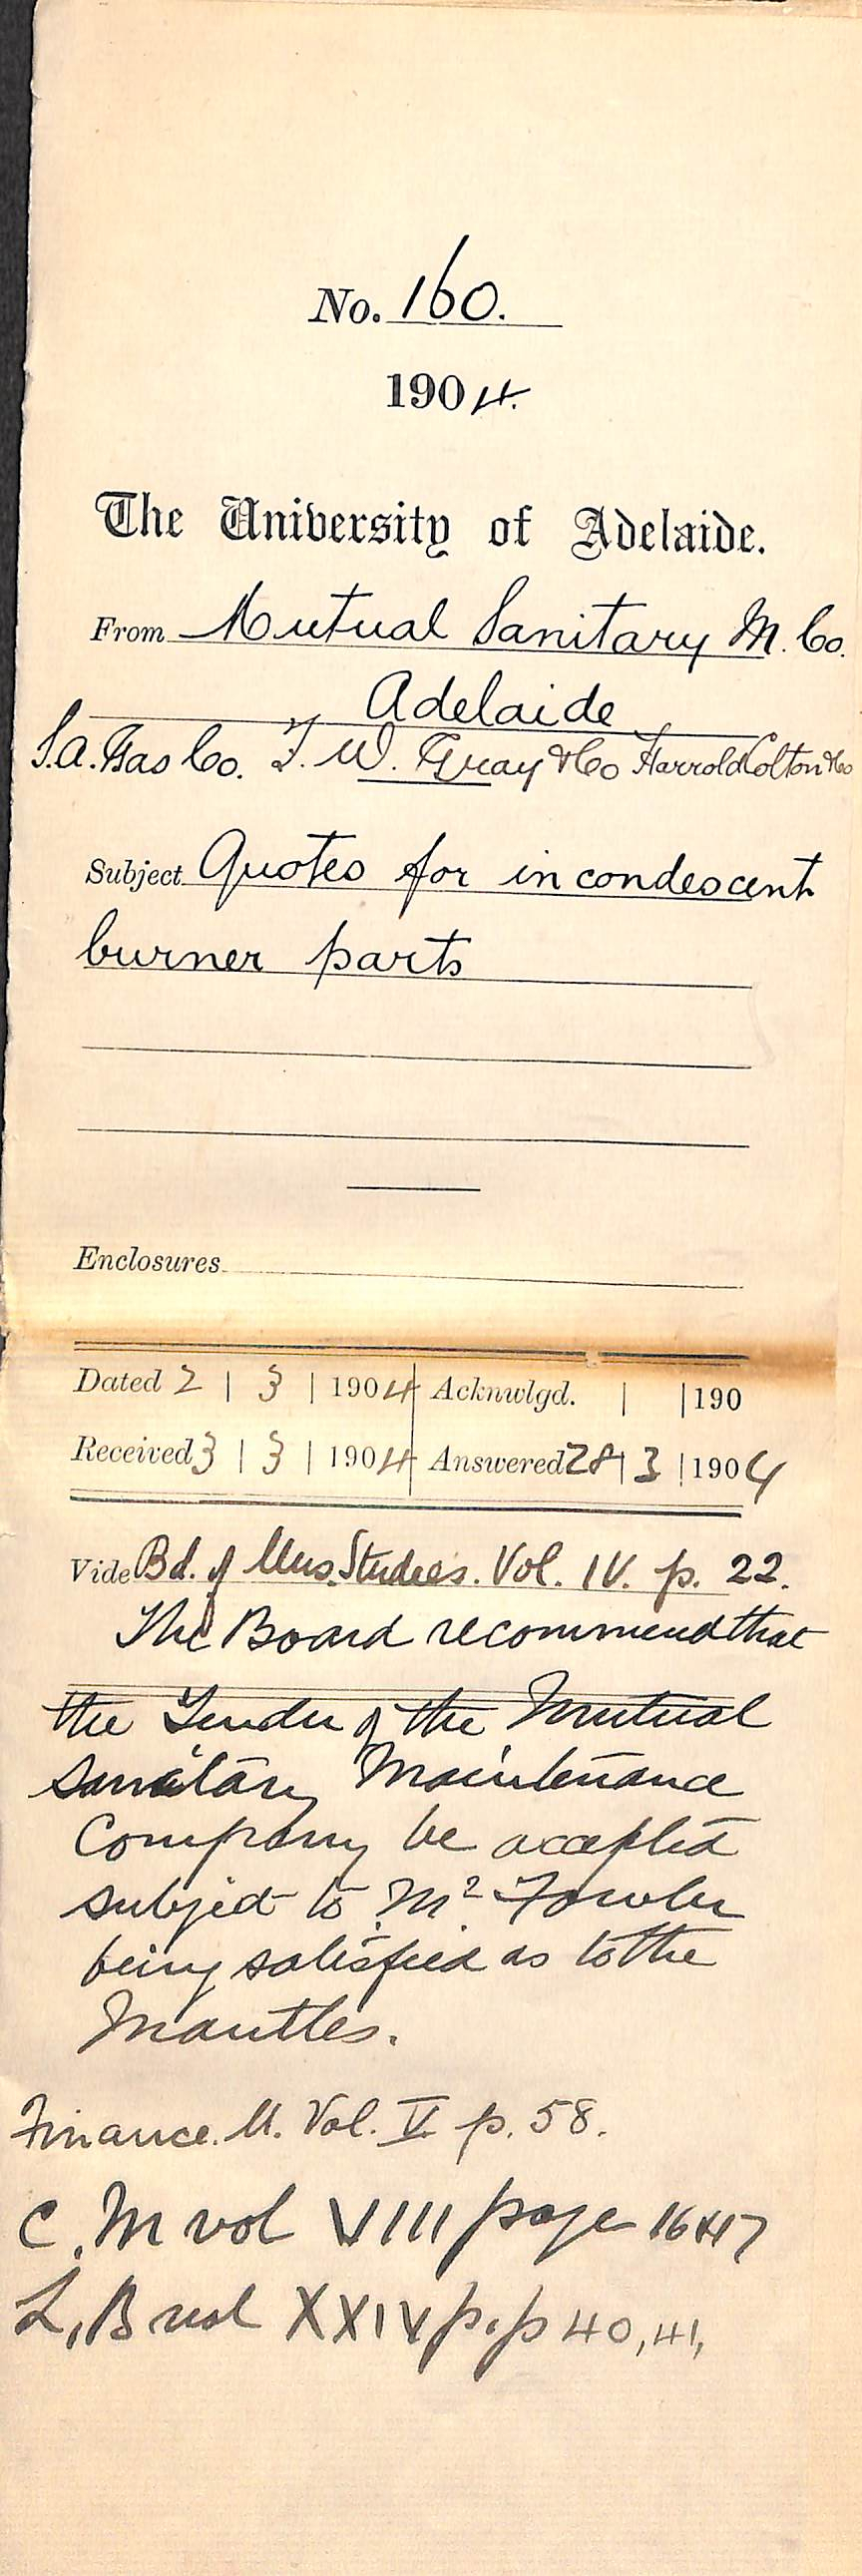 No. 160.
1904.
The University of Adelaide.
From Mutual Sanitary M. Co.
Adelaide
S.A. Gas Co. F. W. Gray & Co Harrold Colton & Co
Subject Quotes for incondescent
burner parts
Enclosures
Dated 2 | 3 | 1904 Acknwlgd. | | 190
Received 3 | 3 | 1904 Answered 28 | 3 | 1904
Vide Bd. of Mus. Studies. Vol. IV. p. 22.
The Board recommend that
the Tender of the Mutual
Sanitary Maintenance
Company be accepted
subject to Mr Fowler
being satisfied as to the
Mantles.
Finance. M. Vol. V. p. 58.
C. M vol VIII page 16 & 17
L, B vol XXIV p.p 40, 41,